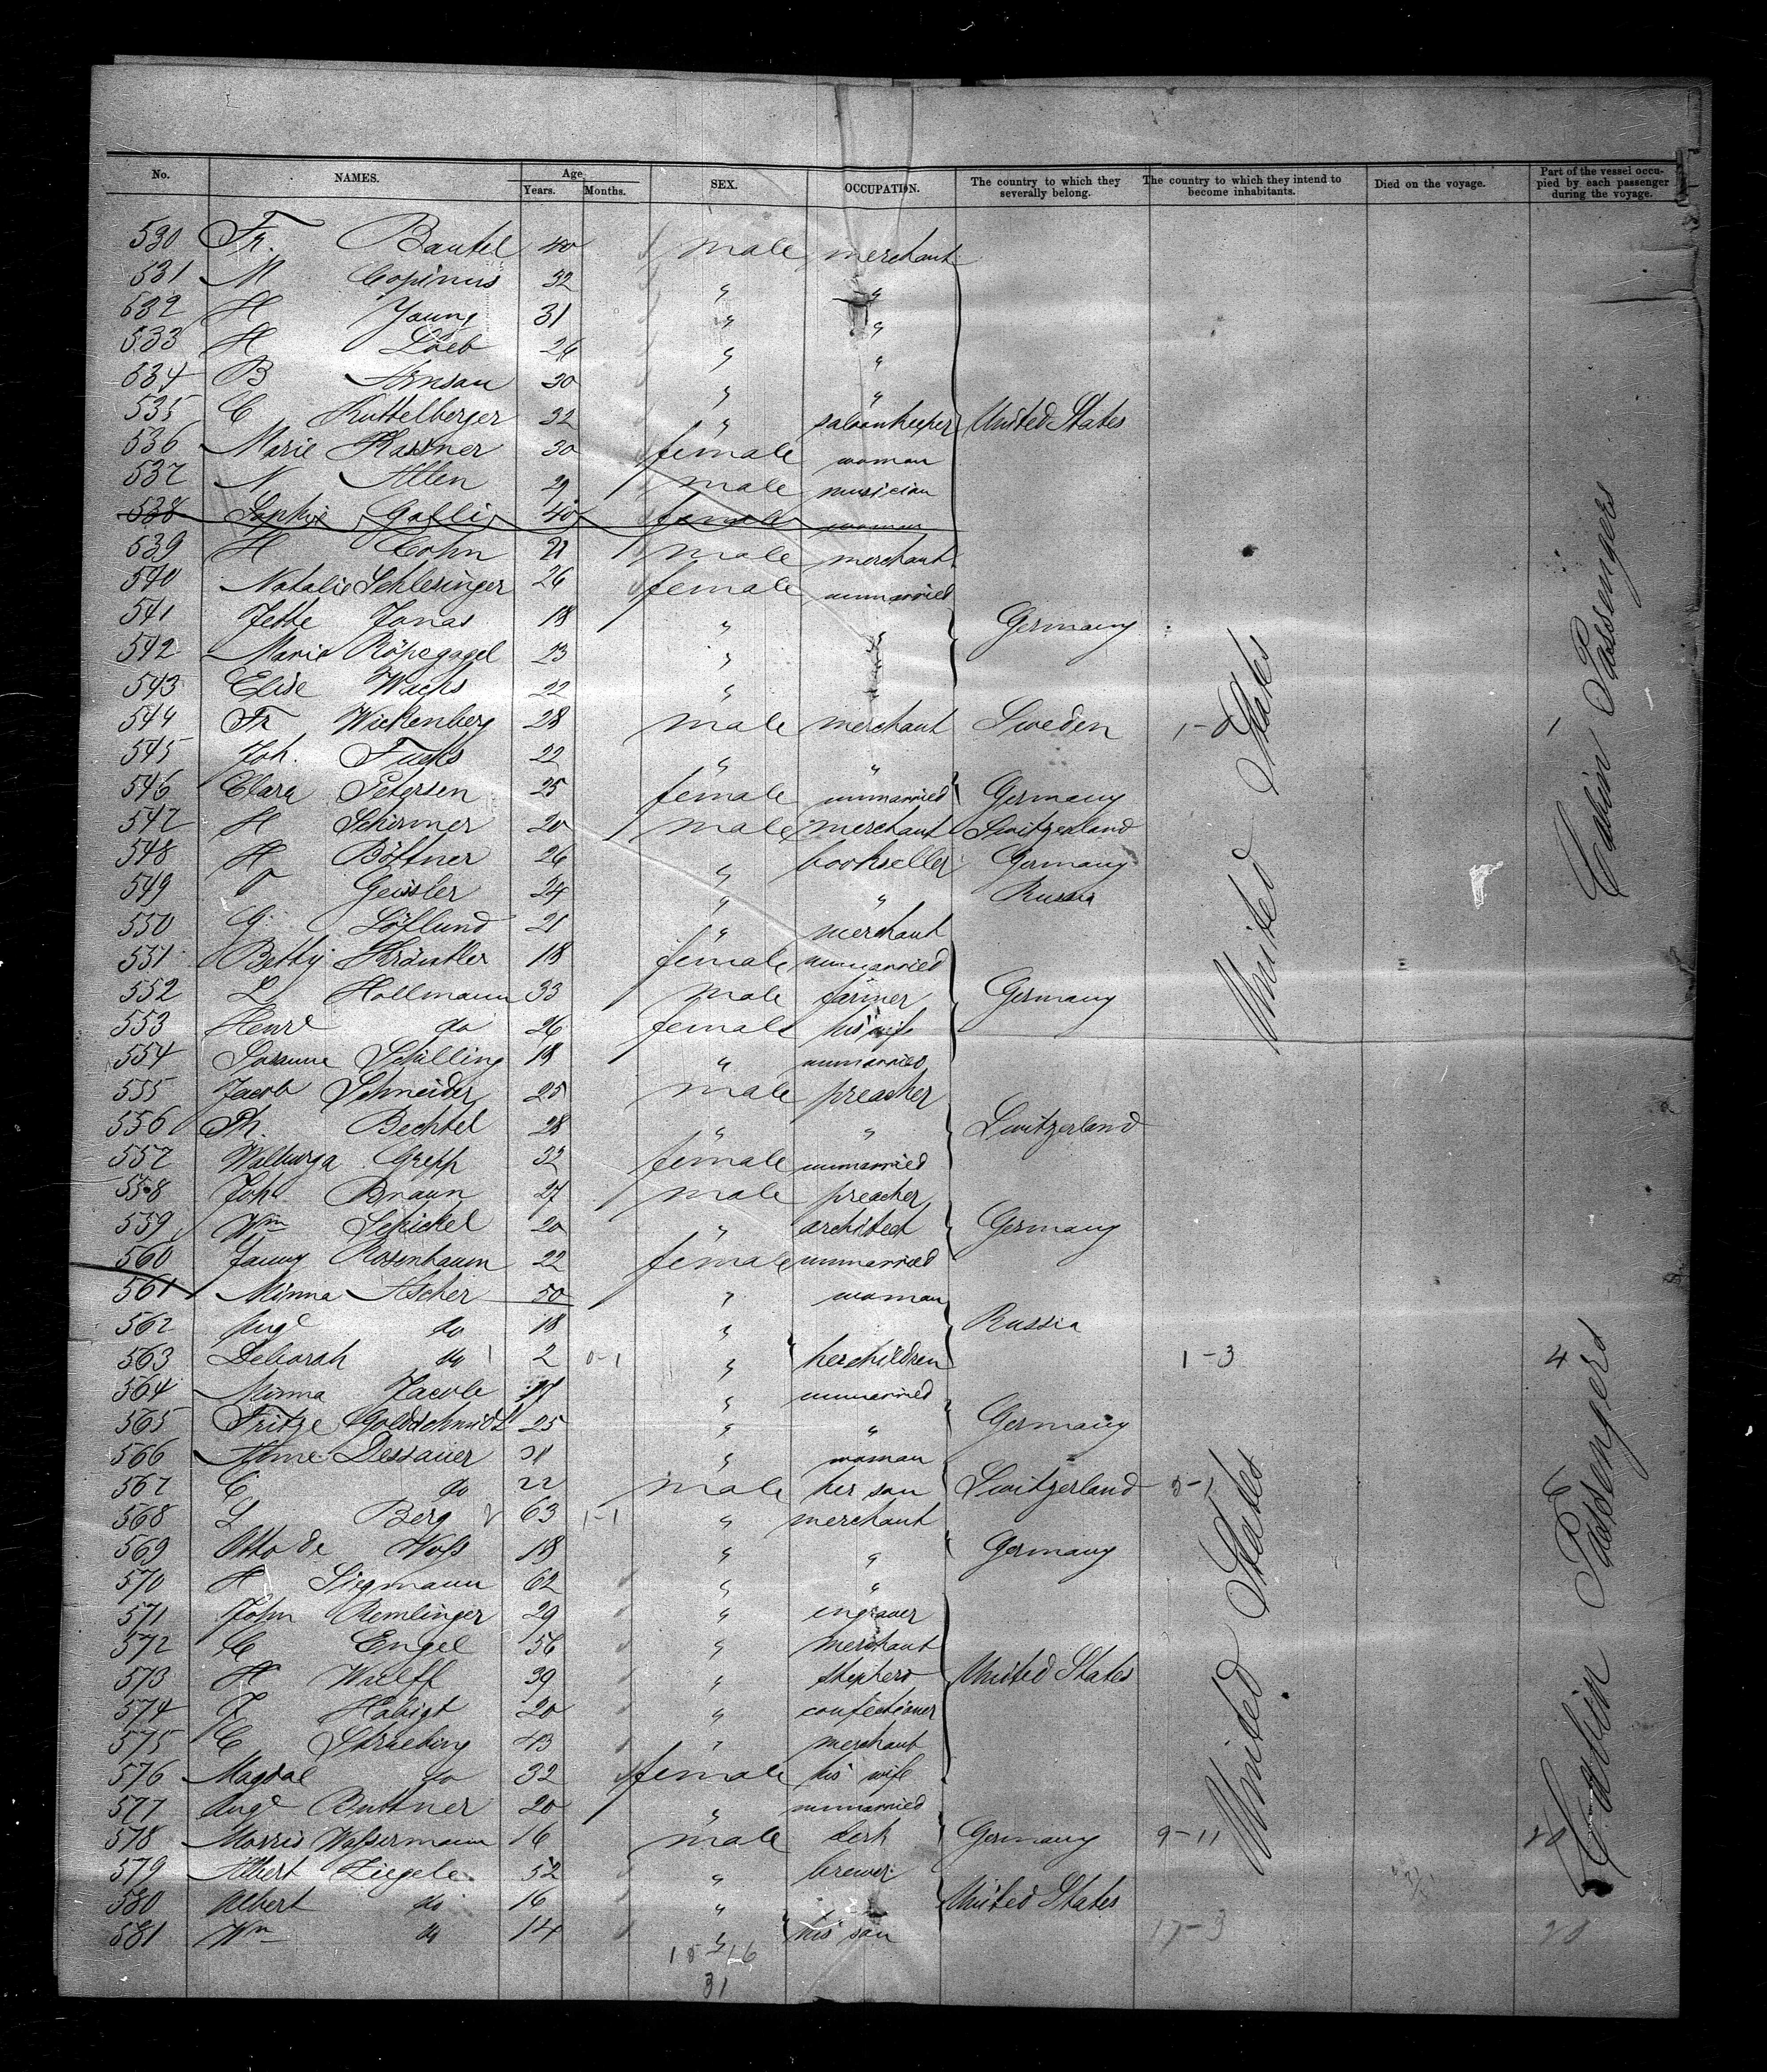 No. NAMES. Age Years. Months. SEX. OCCUPATION. The country to which they severally belong. The country to which they intend to become inhabitants. Died on the voyage. Part of the vessel occupied by each passenger during the voyage.
530 Fr. Bautel 40 male merchant
531 M Copinus 32 " "
532 H Young 31 " "
533 H Löeb 26 " "
534 B Arnsau 30 " "
535 C Kuttelberger 32 " saloonkeeper United States
536 Marie Kassner 30 female woman
537 N Allen 29 male musician
538 Sophie Galli 40 female woman
539 H Cohn 21 male merchant
540 Natalie Schlesinger 26 female unmarried
541 Jette Jonas 18 " " Germany
542 Marie Röhegagel 23 "
543 Elise Wachs 22 " "
544 Fr Wickenberg 28 male merchant Sweden 1-0 1
545 Joh. Fuchs 22 " "
546 Clara Petersen 25 female unmarried Germany
547 H Schirmer 20 male merchant Switzerland
548 H Böttner 26 " bookseller Germany
549 O Geissler 24 " " Russia
550 G Löflund 21 " merchant
551 Betty Kräutler 18 female unmarried
552 L Hollmann 33 male farmer Germany
553 Henre do 26 female his wife
554 Sosanne Schilling 18 " unmarried
555 Jacob Schneider 25 male preacher
556 Ph. Bechtel 28 " " Switzerland
557 Walburga Grepp 32 female unmarried
558 Joh Braun 27 male preacher
559 Wm Schickel 20 " architect Germany
560 Fanny Rosenbaum 22 female unmarried
561 Minna Ascher 50 " woman
562 Auge do 18 " Russia
563 Deborah do 2 0-1 " her children 1-3 4
564 Minna Jacobe 17 " unmarried
565 Fritze Goldschmidt 25 " " Germany
566 Anne Dessauer " woman
567 C do 22 male her son Switzerland
568 L Berg 63 1-1 " merchant
569 Otto de Voss 18 " " Germany
570 H Siegmann 62 " "
571 John Remlinger 29 " engraver
572 C Engel 56 " merchant
573 H Wulff 39 " shepherd United States
574 F Habigt 20 " confectioner
575 C Straebing 43 " merchant
576 Magdal do 32 female his wife
577 Auge Buttner 20 " unmarried
578 Morris Wassermann 16 male clerk Germany 9-11 20
579 Albert Ziegele 52 " brewer
580 Albert do 16 " United States
581 Wm do 14 " his son 17-3 28
31
United States
United States
Cabin Passengers
Cabin Passengers